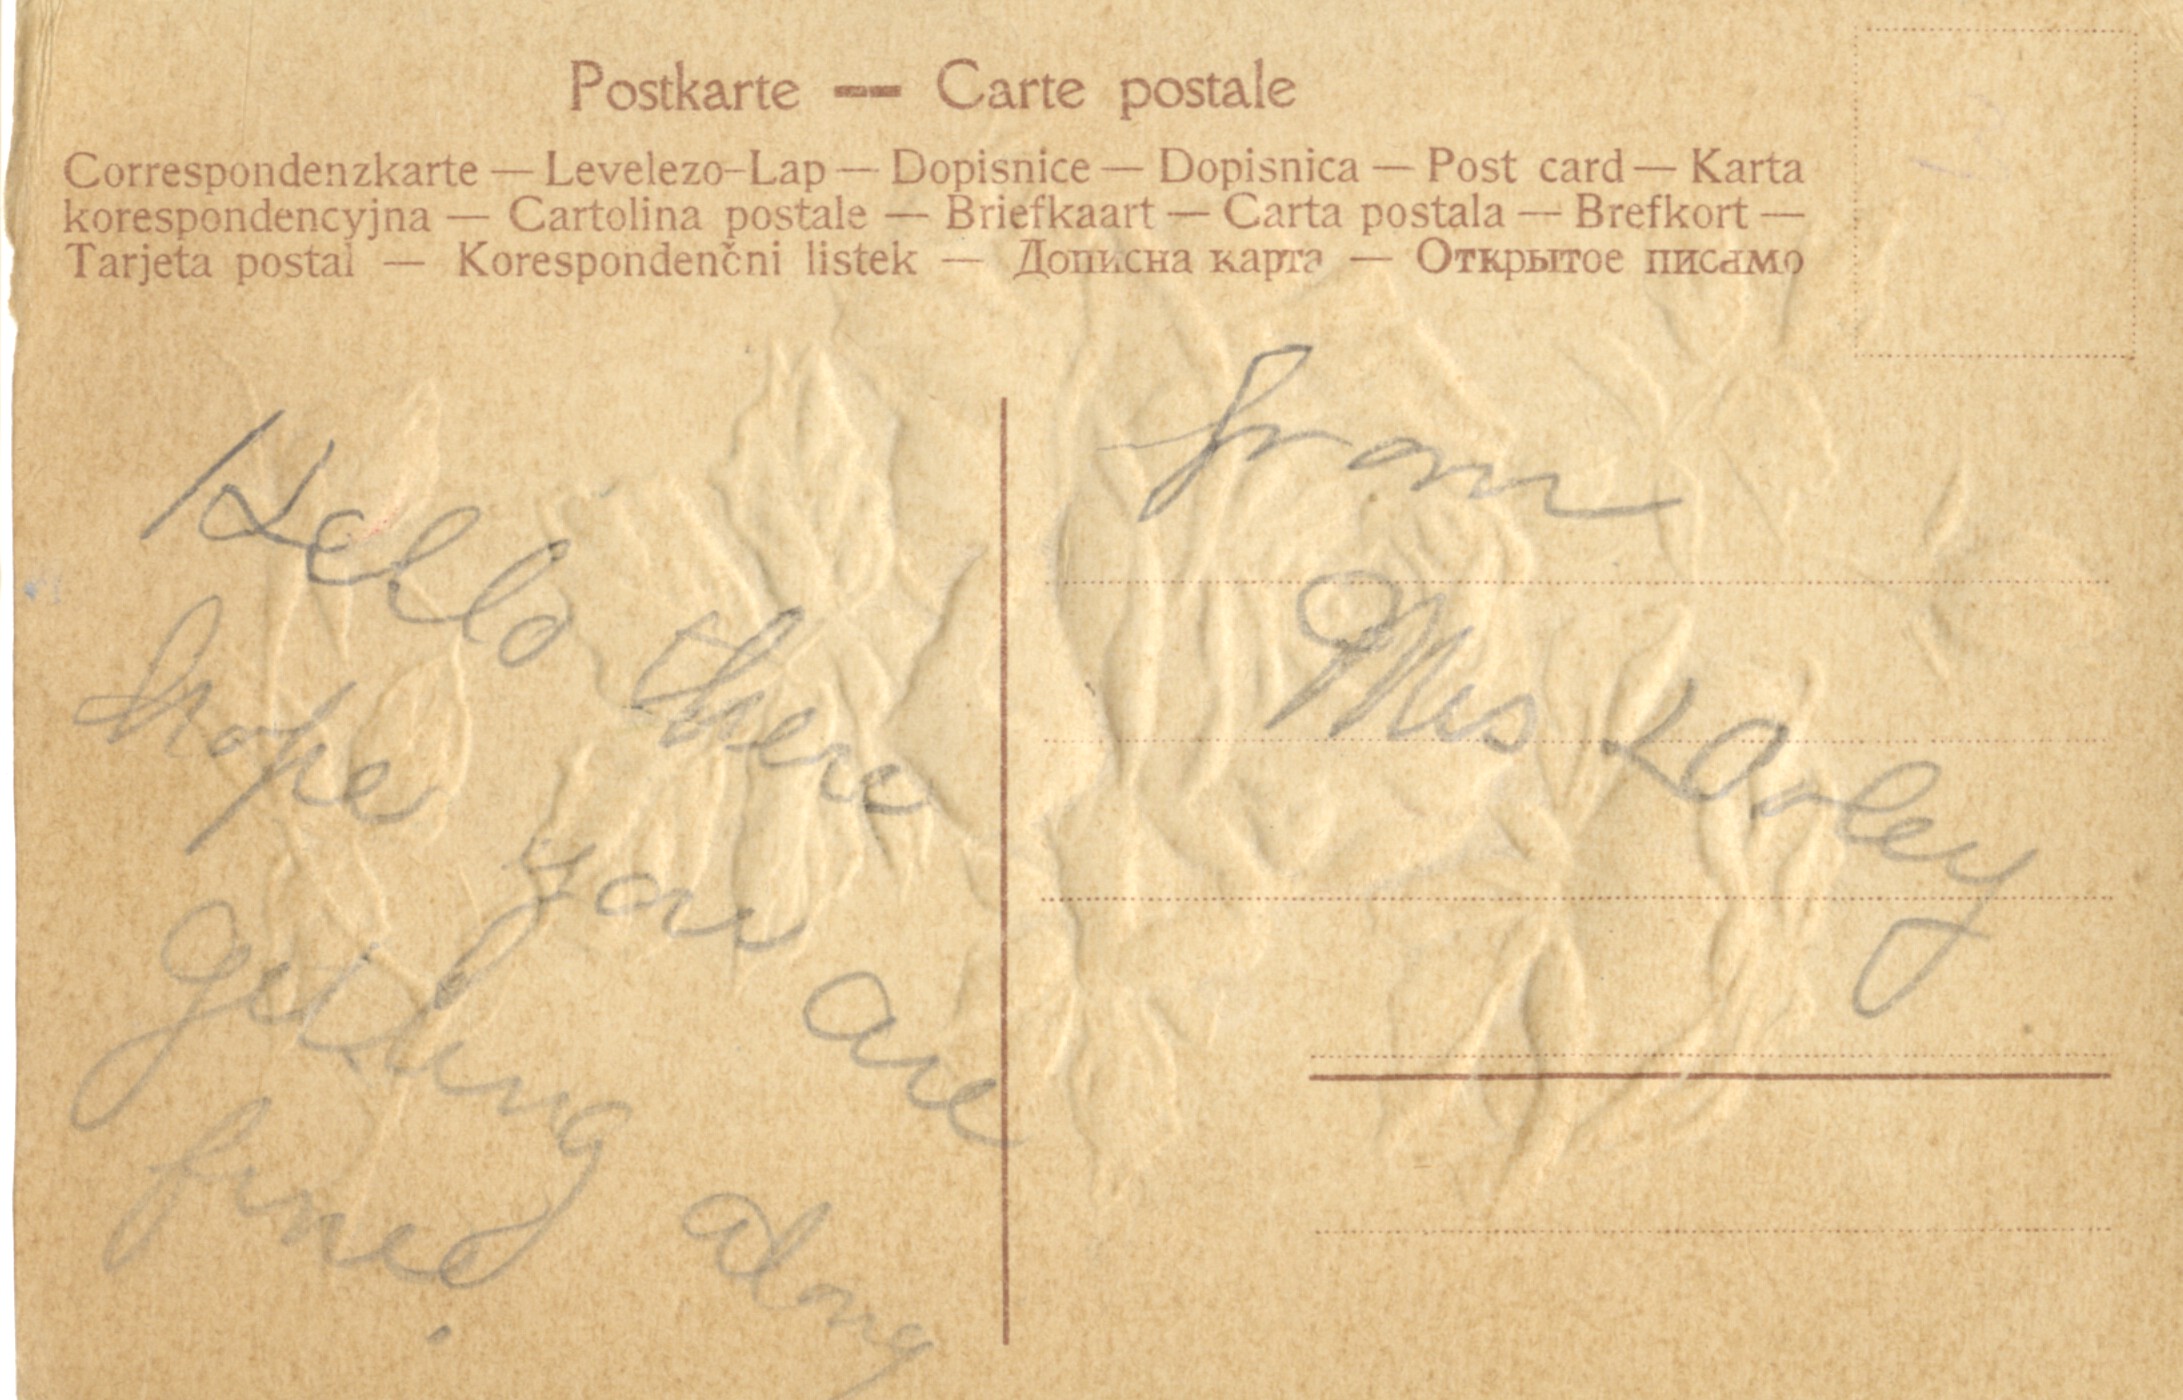 Postkarte — Carte postale
Correspondenzkarte — Levelezo-Lap — Dopisnice — Dopisnica — Post card — Karta
korespondencyjna — Cartolina postale — Briefkaart — Carta postala — Brefkort —
Tarjeta postal — Korespondenčni listek — Дописна карта — Открытое писамо
Hello there
hope you are
getting along
fine.
from
Mrs